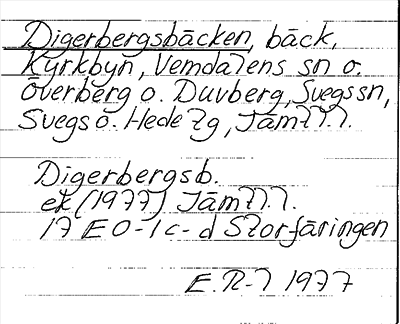 Digerbergsbäcken, bäck,
Kyrkbyn, Vemdalens sn o.
Överberg o. Duvberg, Svegs sn,
Svegs o. Hede tg, Jämtl.l.
Digerbergsb.
ek (1977) Jämtl.l.
17 E 0-1 c-d Storfäringen
E.R-l 1977